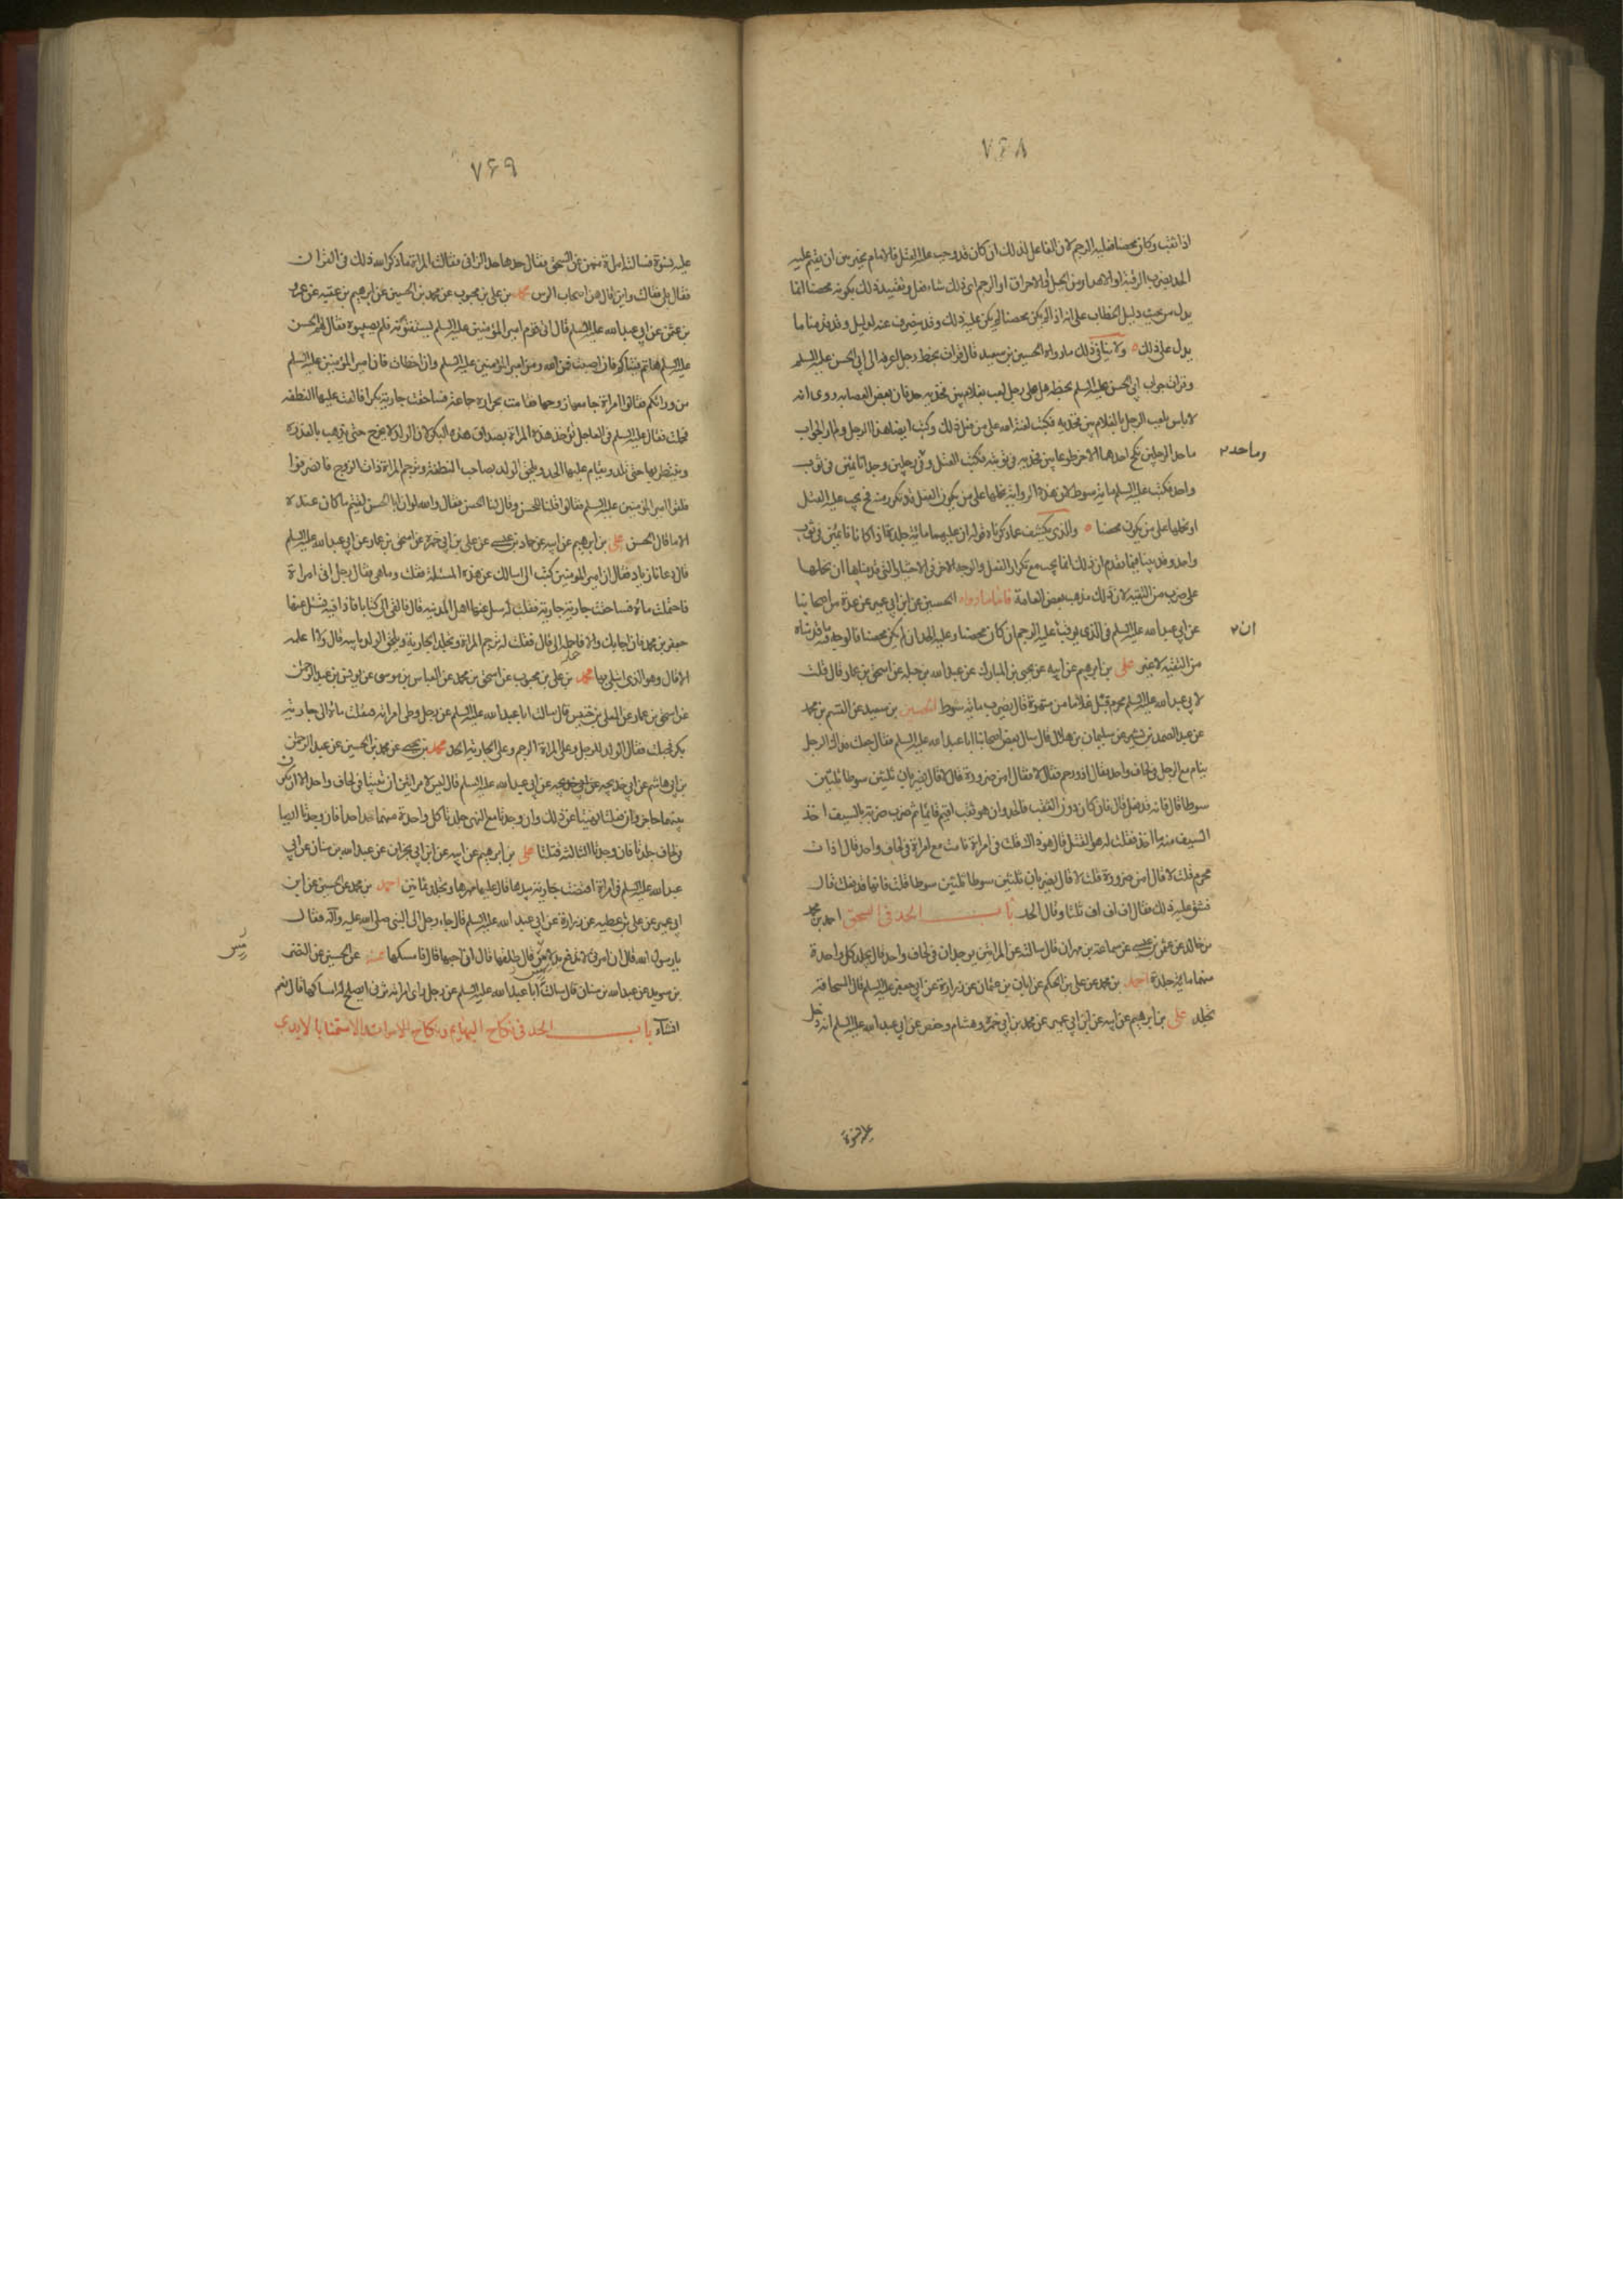 ٧۶٨
اذا ثقب وكان محصنا فعليه الرجم لان الفاعل لذلك ان كان قد وجب عليه القتل فالامام مخير بين ان يقيم عليه
الحد بضرب الرقبة او الاهدار من الجبل او الاحراق او الرجم اى ذلك شاء فعل وتقييد ذلك بكونه محصنا انما
يدل من حيث دليل الخطاب على انه اذا لم يكن محصنا لم يكن عليه ذلك وقد ينصرف عنه لدليل وقد قدمنا ما
يدل على ذلك ه ولا ينافى ذلك ما رواه الحسين بن سعيد قال قرات بخط رجل اعرفه الى ابى الحسن عليه السلم
وقرات جواب ابى الحسن عليه السلم بخطه هل على رجل لعب بغلام بين فخذيه حد فان بعض العصابه روى انه
لا باس بلعب الرجل بالغلام بين فخذيه فكتب لعنة الله على من فعل ذلك وكتب ايضا هذا الرجل ولم ار الجواب
ما حد الرجلين نكح احدهما الاخر طوعا بين فخذيه فى توبته فكتب القتل وفى رجلين وجدا نائمين فى ثوب
وما حد ٢
واحد فكتب عليه السلم مائة سوط لان هذه الرواية نحملها على من يكون الفعل قد تكرر منه فح يجب عليه القتل
او نحملها على من يكون محصنا ه والذى يكشف عما ذكرناه قوله ان عليهما مائة جلدة اذا كانا نائمين فى ثوب
واحد وقد بينا فيما تقدم ان ذلك انما يجب مع تكرار الفعل والوجه الاخر فى الاخبار التى قدمناها ان نحملها
على ضرب من التقيه لان ذلك مذهب بعض العامة فاما ما رواه الحسين عن ابن ابى عمير عن عدة من اصحابنا
عن ابى عبد الله عليه السلم فى الذى يوقب عليه الرجم ان كان محصنا وعليه الحد ان لم يكن محصنا فالوجه فيه ما قدمناه
ان ٢
من التقيه لا غير على بن ابرهيم عن ابيه عن يحيى بن المبارك عن عبد الله بن جبله عن اسحق بن عمار قال قلت
لابى عبد الله عليه السلم محرم قبل غلاما من شهوة قال يضرب مائة سوط الحسين بن سعيد عن القسم بن محمد
عن عبد الصمد بن بشير عن سليمان بن هلال قال سال بعض اصحابنا ابا عبد الله عليه السلم فقال جعلت فداك الرجل
ينام مع الرجل فى لحاف واحد فقال اذو رحم فقال لا فقال امن ضرورة قال لا قال يضربان ثلثين سوطا ثلثين
سوطا قال فانه فعل قال فان كان دون الثقب فالحد وان هو ثقب اقيم قائما ثم ضرب ضربة بالسيف اخذ
السيف منه ما اخذ فقلت له هو القتل قال هو ذاك قلت فى امراة نامت مع امراة فى لحاف واحد قال اذات
محرم قلت لا قال امن ضرورة قلت لا قال يضربان ثلثين سوطا ثلثين سوطا قلت فانها فعلت قال
فشق عليه ذلك فقال اف اف اف ثلثا وقال الحد باب الحد فى السحق احمد بن محمد
بن خالد عن عثمن بن عيسى عن سماعة بن مهران قال سالته عن المراتين يوجدان فى لحاف واحد قال يجلد كل واحدة
منهما مائة جلدة احمد بن محمد عن على بن الحكم عن ابان بن عثمان عن زرارة عن ابى جعفر عليه السلم قال السحاقة
تجلد على بن ابرهيم عن ابيه عن ابن ابى عمير عن محمد بن ابى حمزة وهشام وحفص عن ابى عبد الله عليه السلم انه دخل
عليه نسوة
٧۶٩
عليه نسوة فسالته امراة منهن عن السحق فقال حدها حد الزانى فقالت المراة ما ذكر الله ذلك فى القران
فقال بلى فقالت واين قال هن اصحاب الرس محمد بن على بن محبوب عن محمد بن الحسين عن ابرهيم بن عقبه عن عمرو
بن عثمن عن ابى عبد الله عليه السلم قال اتى قوم امير المؤمنين عليه السلم يستفتونه فلم يصيبوه فقال لهم الحسن
عليه السلم هاتم فتياكم فان اصبت فمن الله ومن امير المؤمنين عليه السلم وان اخطات فان امير المؤمنين عليه السلم
من ورائكم فقالوا امراة جامعها زوجها فقامت بحرارة جماعه فساحقت جارية بكرا فالقت عليها النطفه
فحملت فقال عليه السلم فى العاجل تؤخذ هذه المراة بصداق هذه البكر لان الولد لا يخرج حتى يذهب بالعذره
وينتظر بها حتى تلد ويقام عليها الحد ويلحق الولد بصاحب النطفة وترجم المراة ذات الزوج فانصرفوا
فلقوا امير المؤمنين عليه السلم فقالوا قلنا للحسن وقال لنا الحسن فقال والله لو ان ابا الحسن لقيتم ما كان عنده
الا ما قال الحسن على بن ابرهيم عن ابيه عن حماد بن عيسى عن على بن ابى حمزه عن اسحق بن عمار عن ابى عبد الله عليه السلم
قال دعانا زياد فقال ان امير المؤمنين كتب الى اسالك عن هذه المسئلة فقلت وما هى فقال رجل اتى امراة
فاحتملت ماؤه فساحقت جاريته جارية فقلت له سل عنها اهل المدينه قال فالقى الى كتابا فاذا فيه فسل عنها
جعفر بن محمد فان اجابك والا فاحمله الى قال فقلت له ترجم المراة وتجلد الجارية ويلحق الولد بابيه قال ولا اعلمه
الا قال وهو الذى ابتلى بها محمد بن على بن محبوب عن اسحق بن محمد عن العباس بن موسى عن يونس بن عبد الرحمن
عن اسحق بن عمار عن المعلى بن خنيس قال سالت ابا عبد الله عليه السلم عن رجل وطى امراته فنقلت ماؤه الى جارية
بكر فحبلت فقال الولد للرجل وعلى المراة الرجم وعلى الجارية الحد محمد بن يحيى عن محمد بن الحسين عن عبد الرحمن
بن ابى هاشم عن ابى خديجه عن ابى عبد الله عليه السلم قال ليس لامراتين ان تبيتا فى لحاف واحد الا ان يكون
بينهما حاجز وان فعلتا نهيتا عن ذلك وان وجدتا مع النهى جلدتا كل واحدة منهما حدا حدا فان وجدتا ايضا
فى لحاف جلدتا فان وجدتا الثالثة قتلتا على بن ابرهيم عن ابيه عن ابن ابى نجران عن عبد الله بن سنان عن ابى
عبد الله عليه السلم فى امراة افتضت جارية بيدها قال عليها مهرها وتجلد ثمانين احمد بن محمد عن الحسين عن ابن
ابى عمير عن على بن عطيه عن زرارة عن ابى عبد الله عليه السلم قال جاء رجل الى النبى صلى الله عليه وآله فقال
يا رسول الله قال ان امراتى لا تدفع يد لامس قال طلقها قال انى احبها قال فامسكها عنه عن الحسين عن النضر
بن سويد عن عبد الله بن سنان قال سالت ابا عبد الله عليه السلم عن رجل راى امراته تزنى ايصلح له امساكها قال نعم
انشاء باب الحد فى نكاح البهايم ونكاح الاموات والاستمناء بالايدى